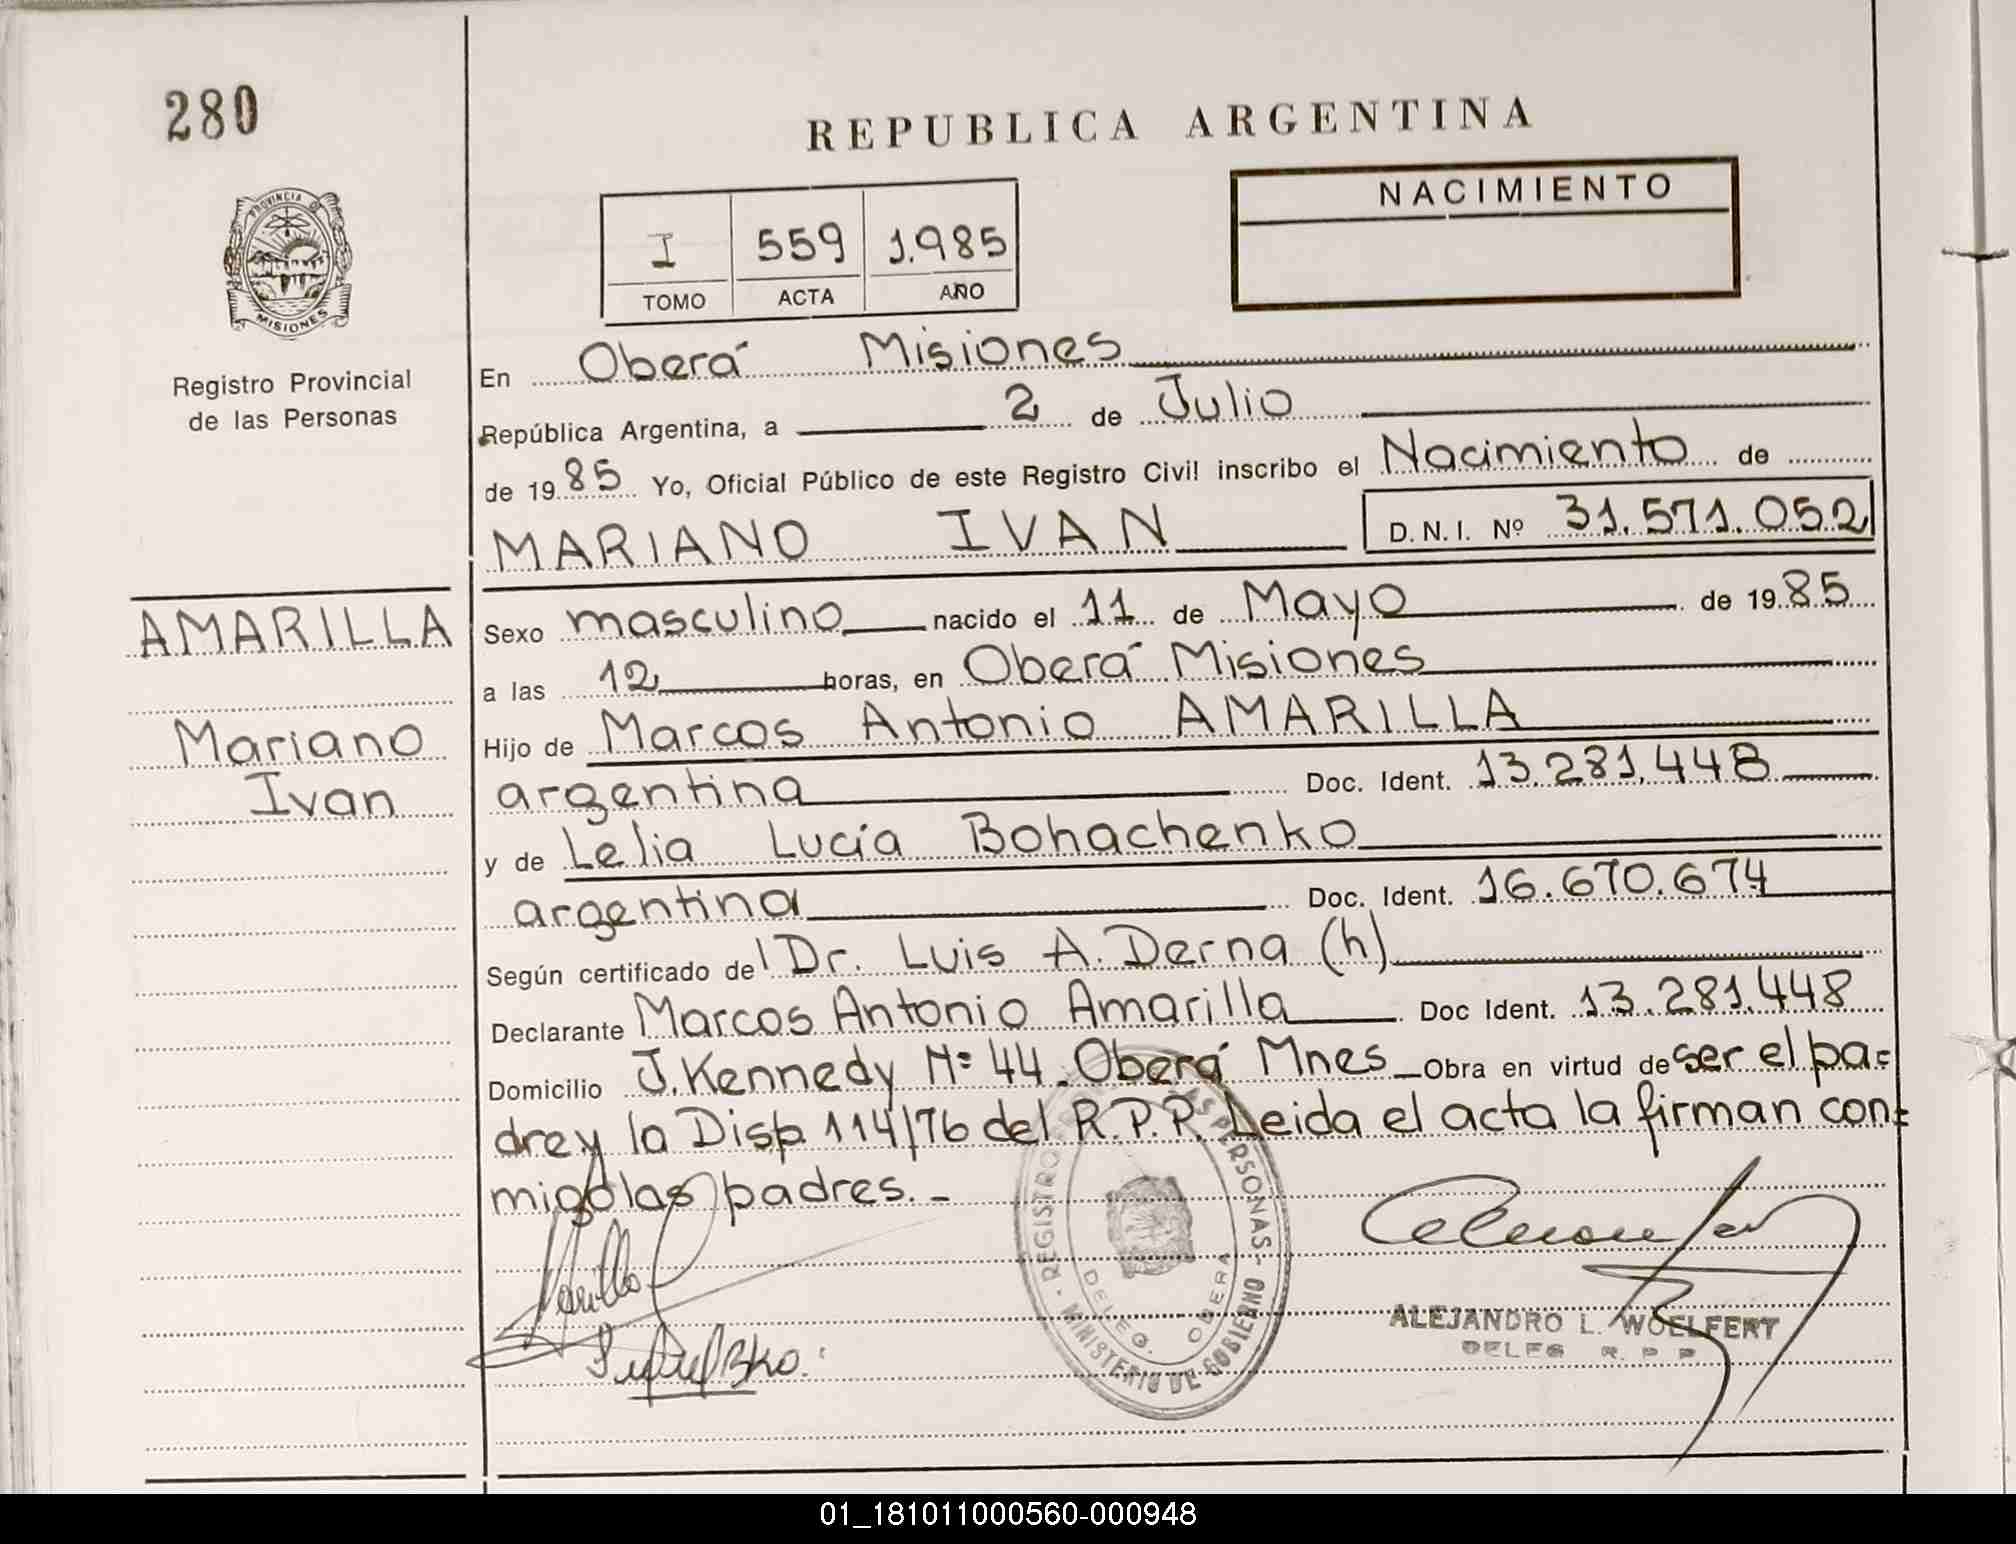 280
REPUBLICA ARGENTINA
NACIMIENTO
I 559 1.985
TOMO ACTA AÑO
PROVINCIA DE
MISIONES
Registro Provincial
de las Personas
En Oberá Misiones
República Argentina, a 2 de Julio
de 1985 Yo, Oficial Público de este Registro Civil inscribo el Nacimiento de
MARIANO IVAN D.N.I. Nº 31.571.052
AMARILLA
Mariano
Ivan
Sexo masculino nacido el 11 de Mayo de 1985
a las 12 horas, en Oberá Misiones
Hijo de Marcos Antonio AMARILLA
argentina Doc. Ident. 13.281.448
y de Lelia Lucía Bohachenko
argentina Doc. Ident. 16.670.674
Según certificado del Dr. Luis A. Derna (h)
Declarante Marcos Antonio Amarilla Doc Ident. 13.281.448
Domicilio J. Kennedy Nº 44. Oberá Mnes Obra en virtud de ser el pa=
dre y la Disp. 114/76 del R.P.P. Leida el acta la firman con=
migo las padres.-
REGISTRO PERSONAS - MINISTERIO DE GOBIERNO
DELEG. OBERA
ALEJANDRO L. WOELFERT
DELEG R.P.P
01_181011000560-000948